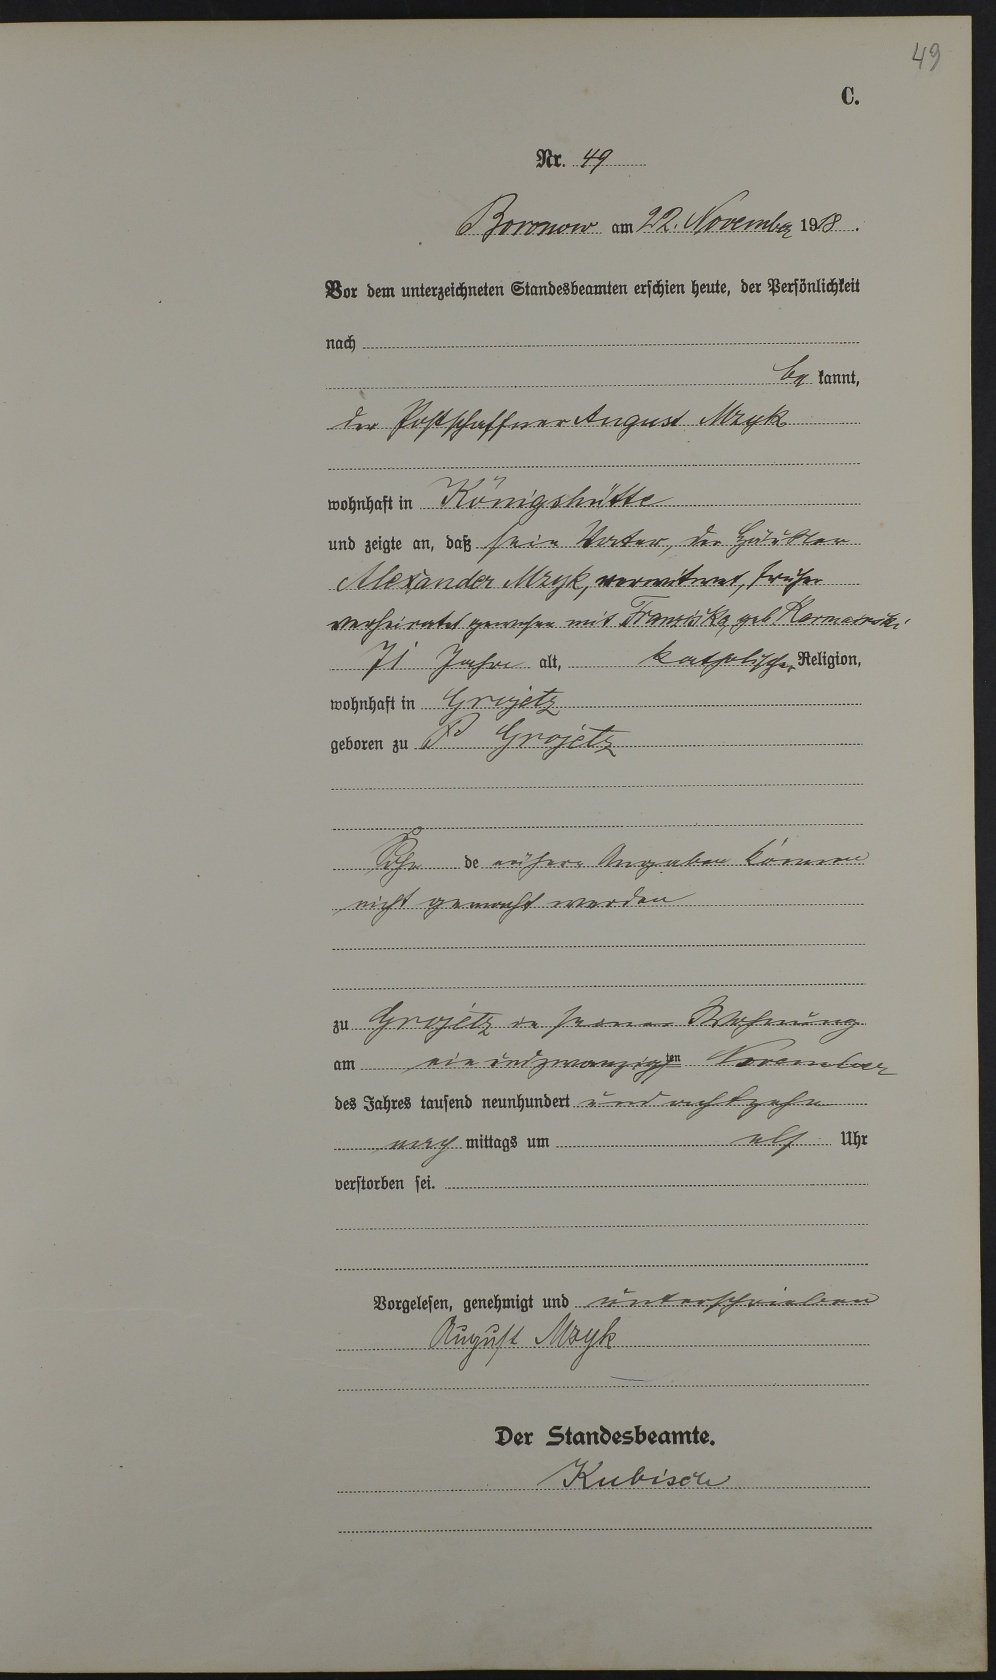 49
C.
Nr. 49
Boronow am 22. November 1918.
Vor dem unterzeichneten Standesbeamten erschien heute, der Persönlichkeit
nach
be kannt,
der Postschaffner August Mzyk
wohnhaft in Königshütte
und zeigte an, daß sein Vater, der Häusler
Alexander Mzyk, verwitwet, früher
verheiratet gewesen mit Franziska, geb.
71 Jahre alt, katholischer Religion,
wohnhaft in Grojetz
geboren zu Grojetz
Sohn de nähere Angaben können
nicht gemacht werden
zu Grojetz in seiner Wohnung
am einundzwanzigsten ten November
des Jahres tausend neunhundert und achtzehn
mittags um elf Uhr
verstorben sei.
Vorgelesen, genehmigt und unterschrieben
August Mzyk
Der Standesbeamte.
Kubisch